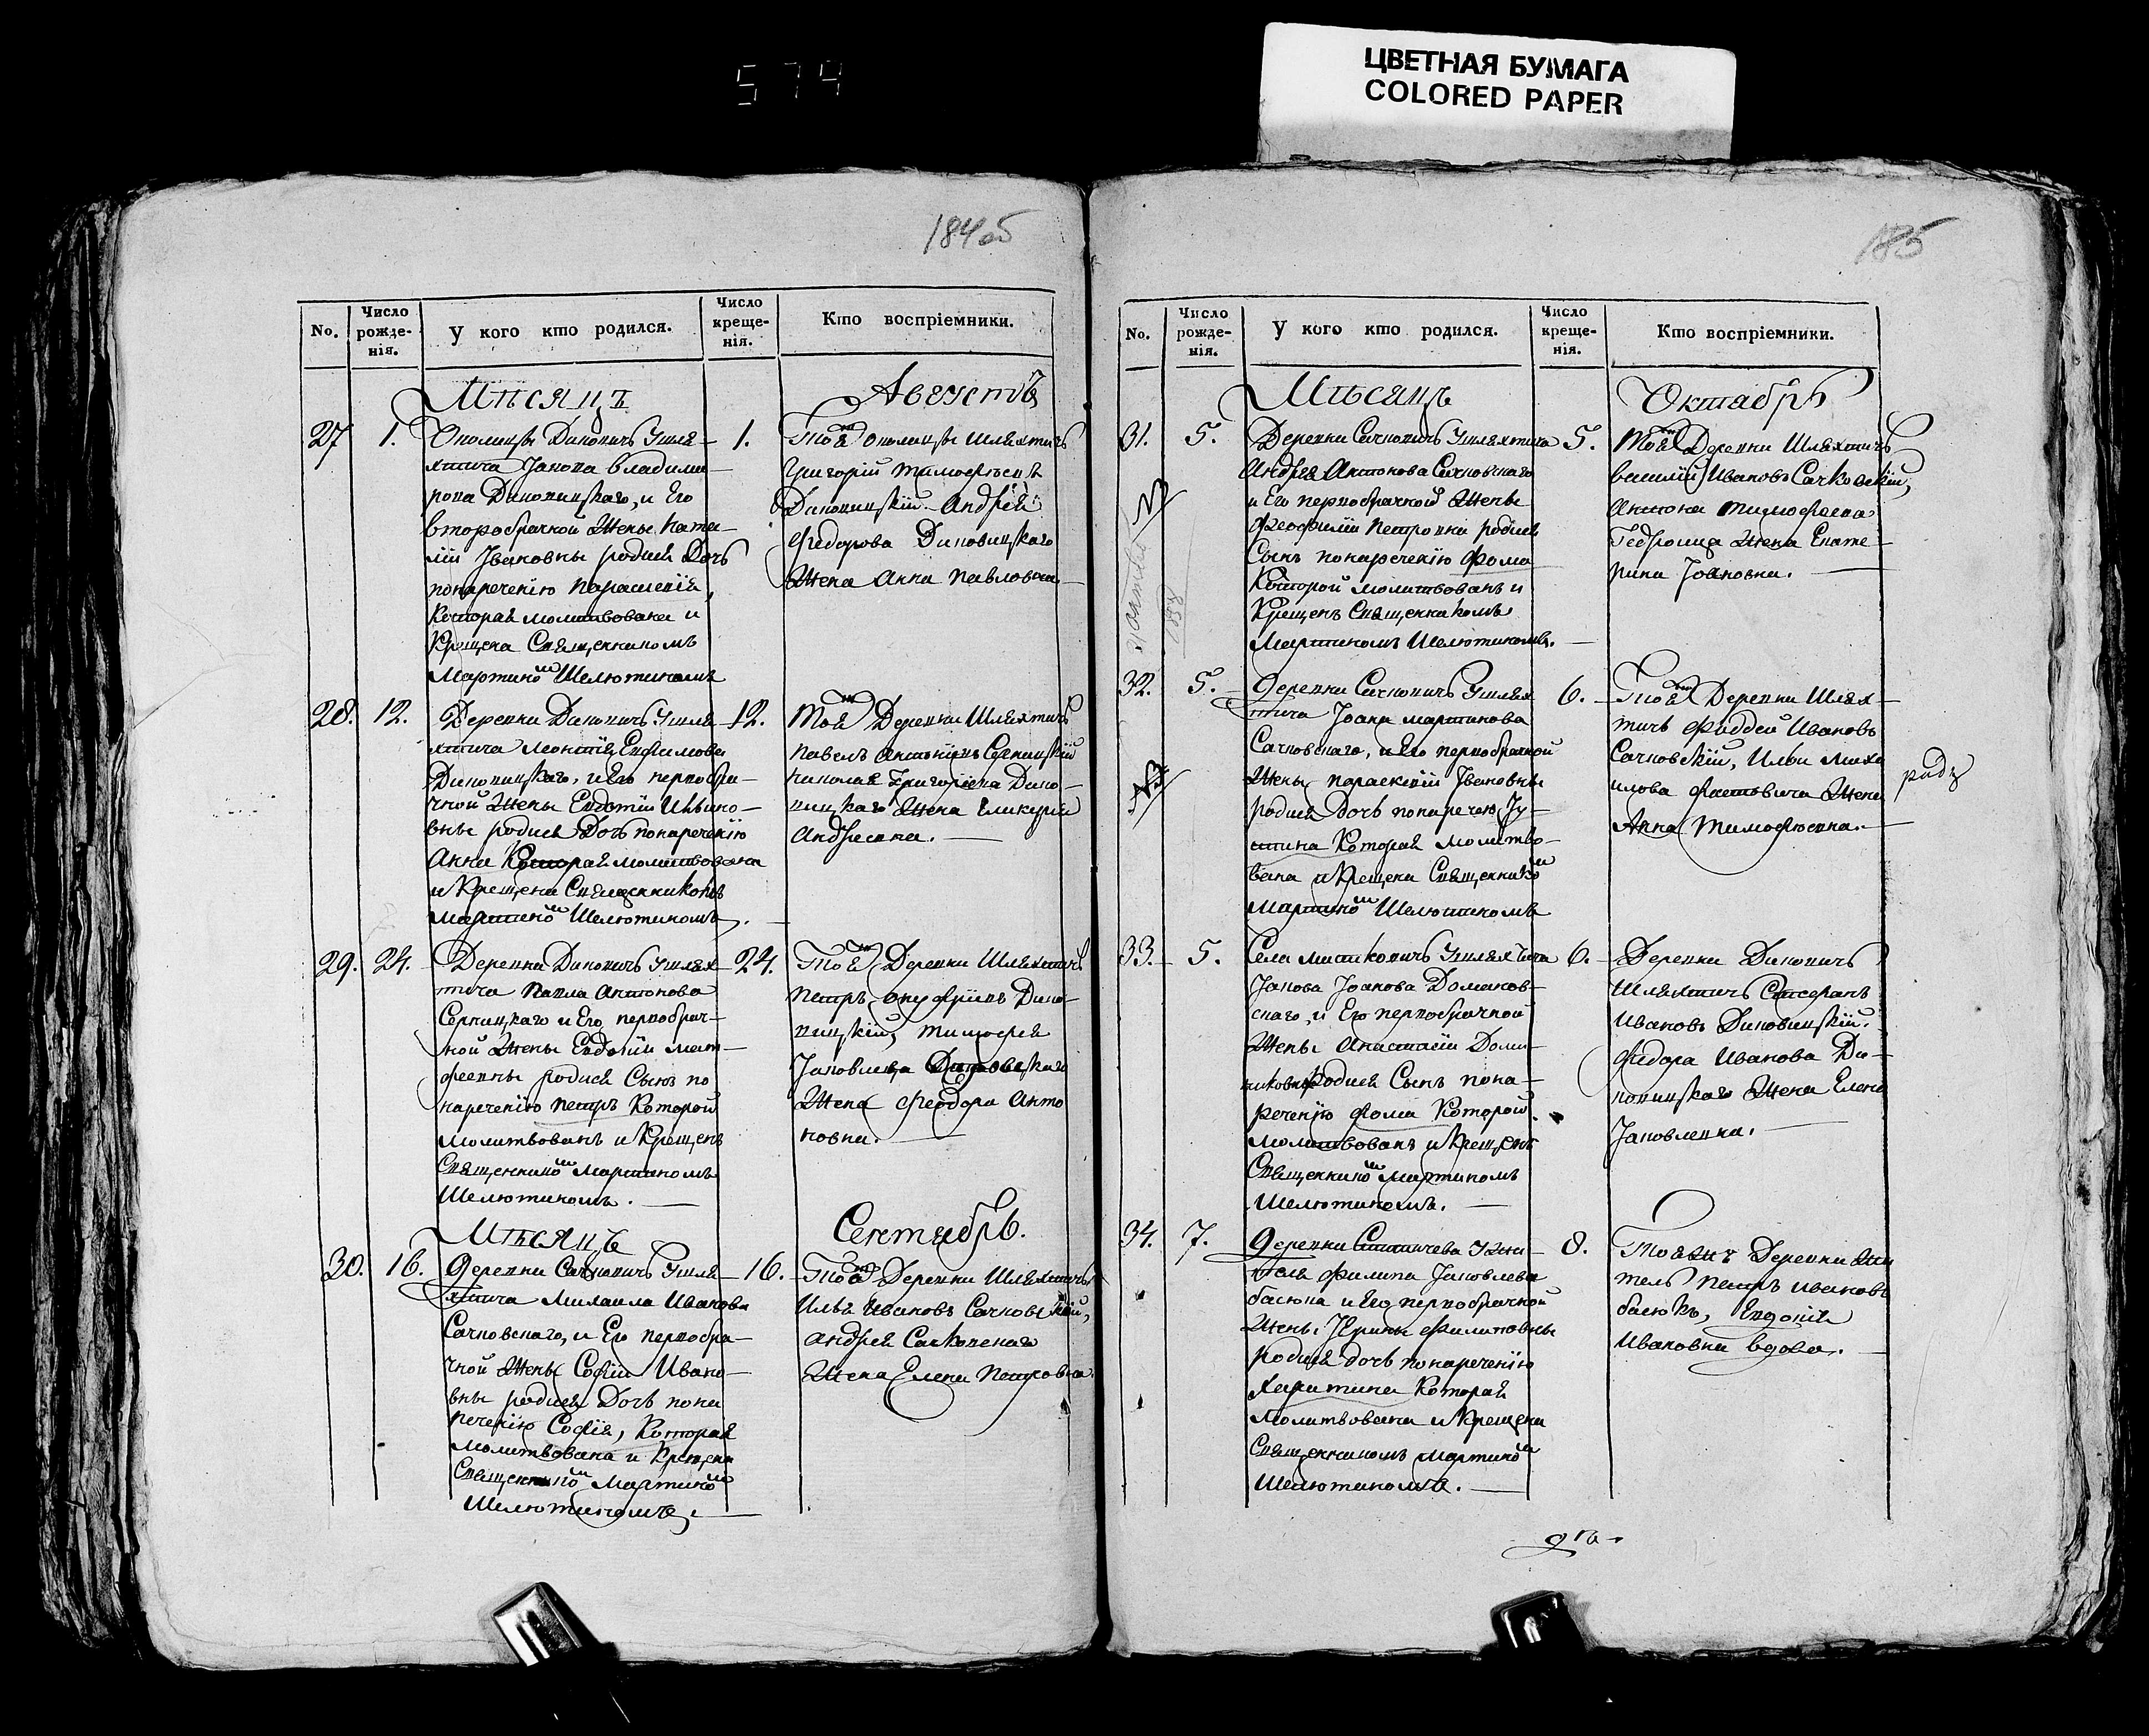 574
ЦВЕТНАЯ БУМАГА
COLORED PAPER
184об
No.
Число рожде-нія.
У кого кто родился.
Число креще-нія.
Кто воспріемники.
Мѣсяцъ Августъ
27 1. Околицы Диковичъ Ушля- 1.
хтича Јакова Владими-
рова Диковицкаго, и Его
второбрачной Жены Ната-
ліи Јвановны родися Дочь
понареченію Параскевія,
Которая молитвована и
Крещена Священникомъ
Мартино м Шелютикомъ
Тоя ж околицы Шляхтичъ
Григорій Тимофѣевъ
Диковицкій. Андрея
Федорова Диковицкаго
Жена Анна Павловна.
28. 12. Деревни Диковичъ Ушля- 12.
хтича Леонтія Ефимова
Диковицкаго, и Его первобра-
чной Жены Евдотіи Ильино-
вны родися Дочь понареченію
Анна Которая молитвована
и Крещена Священникомъ
Мартино м Шелютикомъ.
Тоя ж Деревни Шляхтичъ
Павелъ Антоніевъ Серницкій
Николая Григоріева Дико-
вицкаго Жена Гликерія
Андреевна.
29. 24. Деревни Диковичъ Ушлях- 24.
тича Павла Антонова
Серницкаго и Его первобрач-
ной Жены Евдокіи Мат-
феевны родися Сынъ по
нареченію Петръ Которой
молитвованъ и Крещенъ
Священнико м Мартиномъ
Шелютикомъ.
Тоя ж Деревни Шляхтичъ
Петръ Онуфріевъ Дико-
вицкій, Тимофея
Јаковлева Диковицкаго
Жена Феодора Анто
новна.
Мѣсяцъ Сентябрь.
30. 16. Деревни Сачковичъ Ушля- 16.
хтича Михаила Иванова
Сачковскаго, и Его первобра-
чной Жены Софіи Ивано-
вны родися Дочь пона
речению Софія, Которая
молитвована и Крещена
Священнико м Мартино м
Шелютикомъ.
Тоя ж Деревни Шляхтичъ
Илья Ивановъ Сачковскій,
Андрея Сачковскаго
Жена Елена Петровна.
185
No.
Число рожде-нія.
У кого кто родился.
Число креще-нія.
Кто воспріемники.
Мѣсяцъ Октябрь
31. 5. Деревни Сачковичъ Ушляхтича 5.
Андрея Антонова Сачковскаго
и Его первобрачной Жены
Феофиліи Петровны родися
Сынъ понареченію Фома
Которой молитвованъ и
Крещенъ Священникомъ
Мартиномъ Шелютикомъ.
Тоя ж Деревни Шляхтичъ
Василій Ивановъ Сачковскій,
Антона Тимофеева
Жена Екате-
рина Јвановна.
32. 5. Деревни Сачковичъ Ушлях 6.
тича Јоана Мартинова
Сачковскаго, и Его первобрачной
Жены Параскевіи Јвановны
родися Дочь понаречею Ју-
стина Которая Молитво-
вана и Крещена Священнико м
Мартино м Шелютикомъ
Тоя ж Деревни Шлях-
тичъ Фаддей Ивановъ
Сачковскій, Ильи Миха
илова Жена
Анна Тимофѣевна.
33. 5. Села Мистковичъ Ушляхтича 6.
Јакова Јоакова Доманов-
скаго, и Его первобрачной
Жены Анастасіи Доми-
никовны родися Сынъ пона-
реченію Фома Которой
молитвованъ и Крещенъ
Священнико м Мартиномъ
Шелютикомъ.
Деревни Диковичъ
Шляхтичъ
Ивановъ Диковицкій.
Федора Иванова Ди-
ковицкаго Жена Елена
Јаковлевна.
34. 7. Деревни Ставичева Ужи- 8.
теля Филипа Јаковлева
Басюка и Его первобрачной
Жены Ирины Филиповны
родися дочь понареченію
Харитина Которая
Молитвована и Крещена
Священникомъ Мартино м
Шелютикомъ.
Тоя ж Деревни Жи
тель Петръ Ивановъ
Басюкъ, Евдокія
Ивановна вдова.